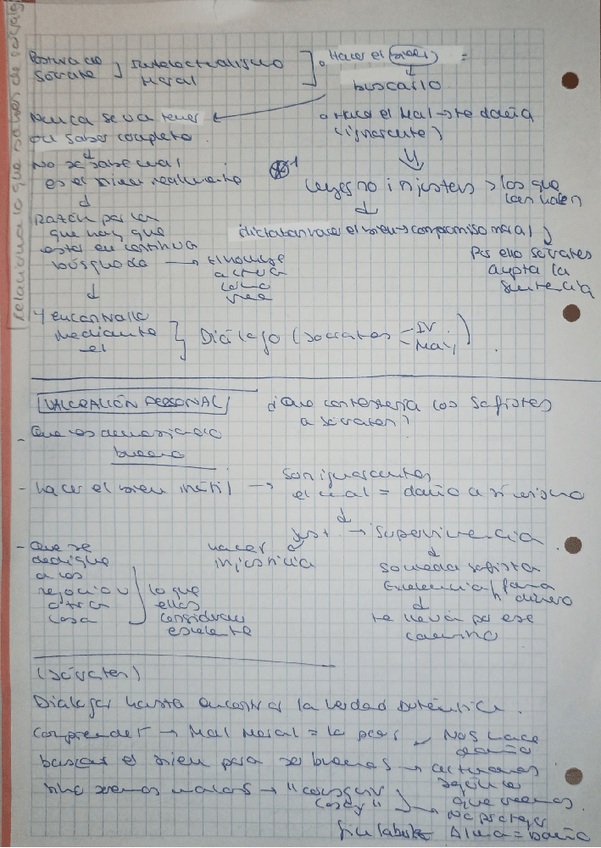 Relaciona lo que
Postura de
Sócrates } Intelectualismo
Moral
] o Hacer el bien =
buscarlo
Nunca se va tener
un saber completo
o Hace el Mal → te daña
(ignorante)
No se sabe cual
es el bien realmente
*1
Leyes no injustas > los que
las hacen
Razón por la
que hay que
estar en continua
búsqueda → El hombre
actúa
como
vee
dictaban hacer el bien → compromiso moral
Por ello Sócrates
acepta la
sentencia
Y encontrarlo
mediante
el } Diálogo (Socrates - IR
- May)
VALORACIÓN PERSONAL
¿Que contestaría los Sofistas
a Sócrates?
- Que es demasiado
bueno
- hacer el bien inútil → son ignorantes
el mal = daño a si mismo
→ Supervivencia
- Que se
dedique
a los
negocios u
otra
cosa
lo que
ellos
consideran
excelente
hacer
injusticia
sociedad sofista
Excelencia / fama
dinero
te lleva por ese
camino
(Sócrates)
Dialogar hasta encontrar la verdad auténtica.
Comprender → Mal Moral = lo peor
Nos hace
daño
buscar el bien para ser buenos → actuamos
según lo
que veamos
sino seremos malos →
Alma = daño